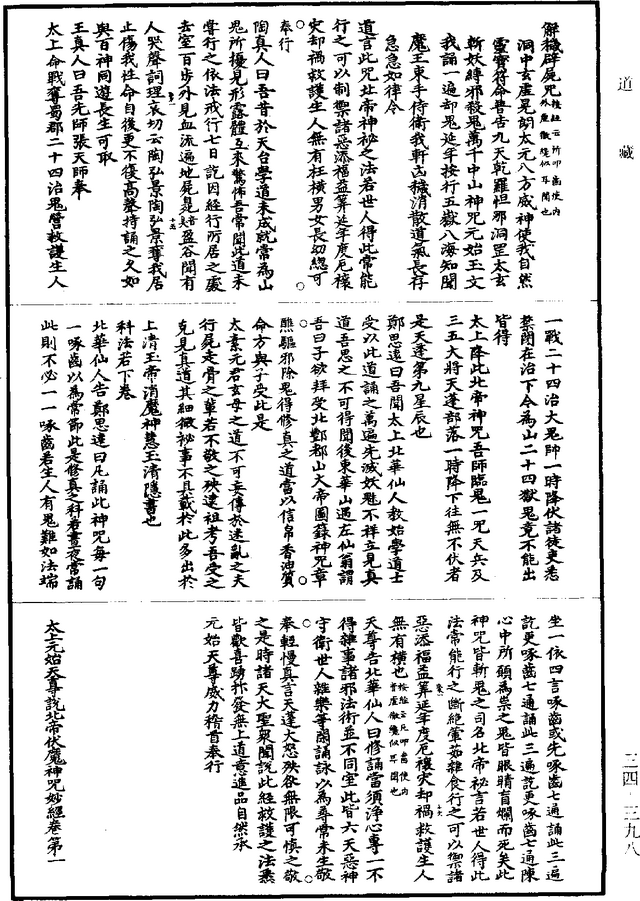 道藏
解穢辟屍咒按經云所叩齒使內外虛徹縱似耳聞也
洞中玄虛晃朗太元八方威神使我自然
靈寶符命普告九天乾羅怛那洞罡太玄
斬妖縛邪殺鬼萬千中山神咒元始玉文
我誦一遍却鬼延年按行五嶽八海知聞
魔王束手侍衛我軒凶穢消散道氣長存
急急如律令
遺言此咒北帝神祕之法若世人得此常能
行之可以制禦諸惡添福益筭延年度厄禳
灾却禍救護生人無有枉橫男女長幼緫可
奉行
陶真人曰吾昔於天台學道未成就常為山
鬼所擾見形露體互來驚怖吾常聞此道未
嘗行之依法戒行七日訖因經行所居之處
去室百步外見血流遍地屍臭盈谷聞有
人哭聲詞理哀切云陶弘景陶弘景奪我居
止傷我性命自後更不復高聲持誦之久如
與百神同遊長生可取
王真人曰吾先師張天師奉
太上命戰奪蜀郡二十四治鬼營救護生人
一戰二十四治大鬼帥一時降伏諸徒吏悉
禁閉在治下令為山二十四獄鬼竟不能出
皆得
太上降此北帝神咒吾師臨鬼一咒天兵及
三五大將天蓬部落一時降下往無不伏者
是天蓬第九星辰也
鄭思遠曰吾聞太上北華仙人教始學道士
受以此道誦之萬遍先滅妖魅不祥立見真
道吾思之不可得聞後東華山遇左仙翁謂
吾曰子欲拜受北酆都山大帝圖籙神咒章
醮驅邪除鬼得修真之道當以信帛香油質
命方與子受此是
太素元君玄母之道不可妄傳於迷亂之夫
行屍走骨之輩若不敬之殃逮祖考吾受之
克見真道其細微祕事不具載於此多出於
上清玉帝消魔神慧玉清隱書也
科法若下卷
北華仙人告鄭思遠曰凡誦此神咒每一句
一啄齒以為常節此是修真之科若晝夜常誦
此則不必一一啄齒若生人有鬼難如法端
坐一依四言啄齒或先啄齒七通誦此三遍
訖更啄齒七通誦此三遍訖更啄齒七通陳
心中所願為祟之鬼皆眼睛盲爛而死矣此
神咒皆斬鬼之司名北帝祕言若世人得此
法常能行之斷絕葷茹雜食行之可以禦諸
惡添福益筭延年度厄禳灾却禍救護生人
無有橫也按經云凡叩齒使內皆虛徹縱似耳聞也
天尊告北華仙人曰修誦當須淨心專一不
得雜事諸邪法術並不同室此皆六天惡神
守衛世人雜樂等閑誦詠以為尋常未生敬
奉輕慢真言天蓬大怒殃欲無限可慎之敬
之是時諸天大聖衆聞說此經救護之法悉
皆歡喜踴抃發無上道意進品自然永
元始天尊威力稽首奉行
太上元始天尊說北帝伏魔神咒妙經卷第一
三四－三九八